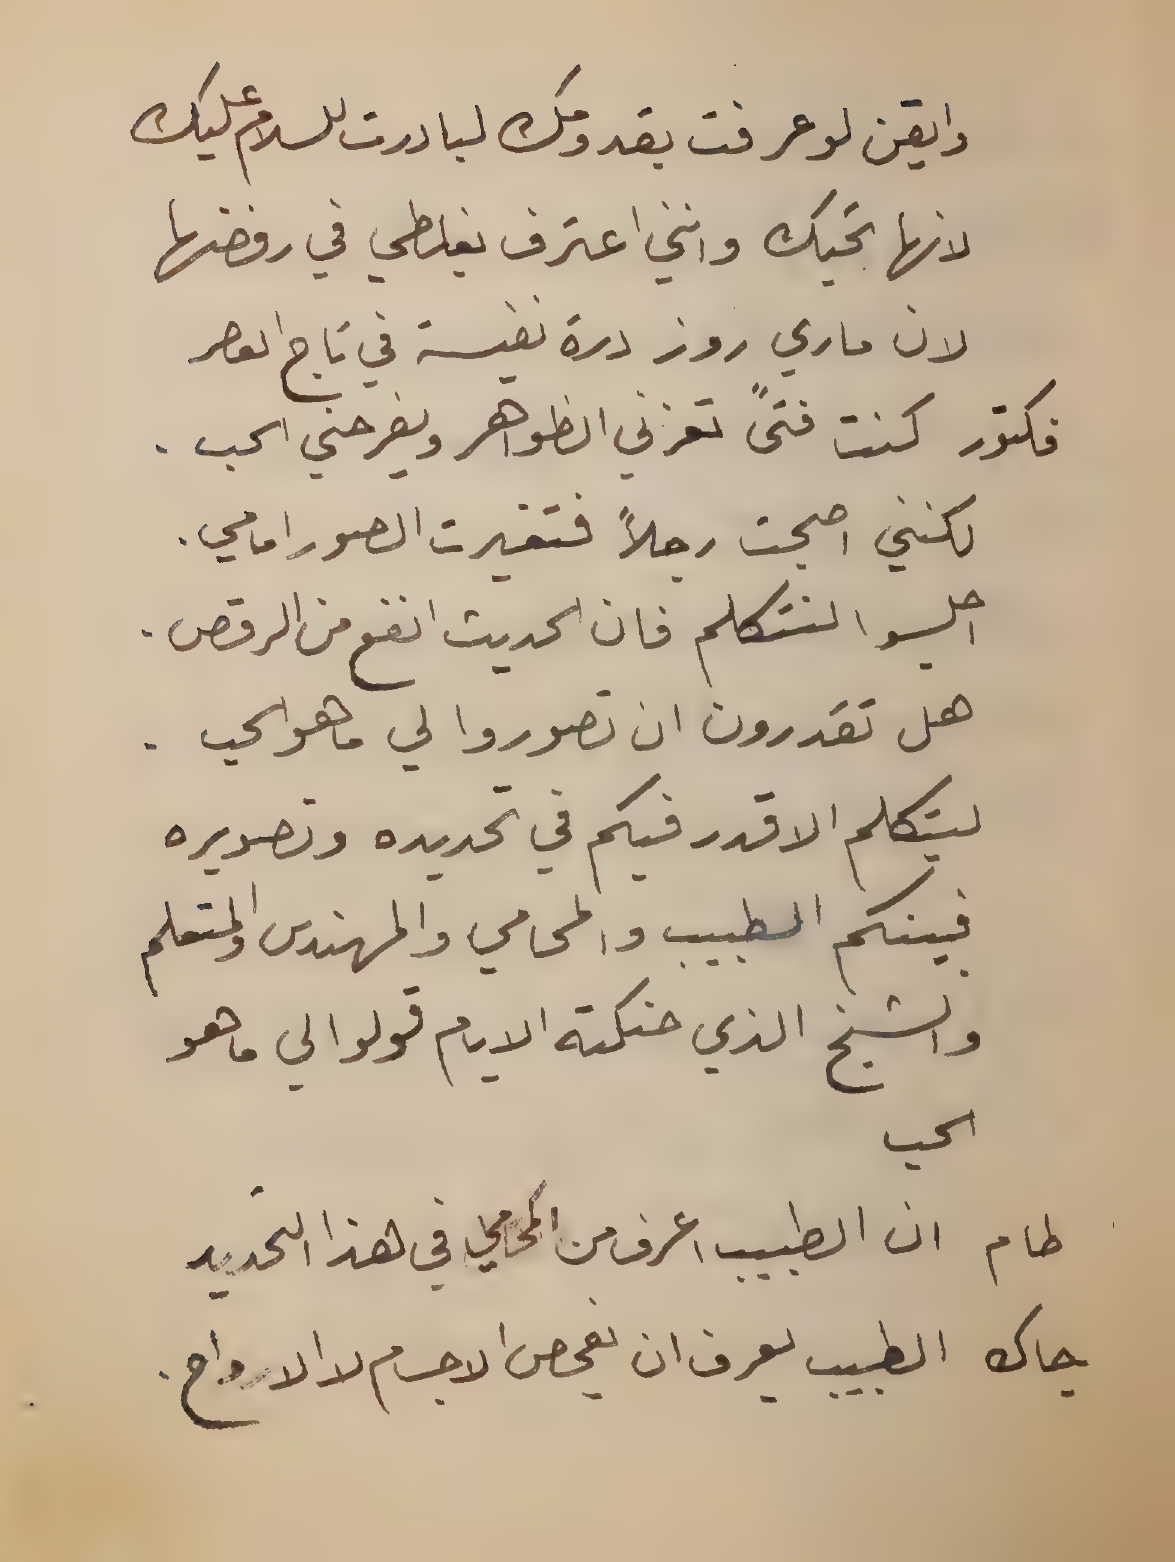 وايقن لو عرفت بقدومك لبادرت للسلام عليك
لانها تحبك وانني اعترف بغلطي في رفضها
لان ماري روز درة نفيسة في تاج العصر
فكتور كنت فتىً تغرني الظواهر ويفرحني الحب .
لكنني اصبحت رجلاً فتغيرت الصور امامي .
اجلسوا لنتكلم فان الحديث انفع من الرقص .
هل تقدرون ان تصوروا لي ما هو الحب .
ليتكلم الاقدر فيكم في تحديده وتصويره
فبينكم الطبيب والمحامي والمهندس والمتعلم
والشيخ الذي حنكته الايام قولوا لي ما هو
الحب
طام ان الطبيب اعرف من المحامي في هذا التحديد
جاك الطبيب يعرف ان يفحص الاجسام لا الارواح .